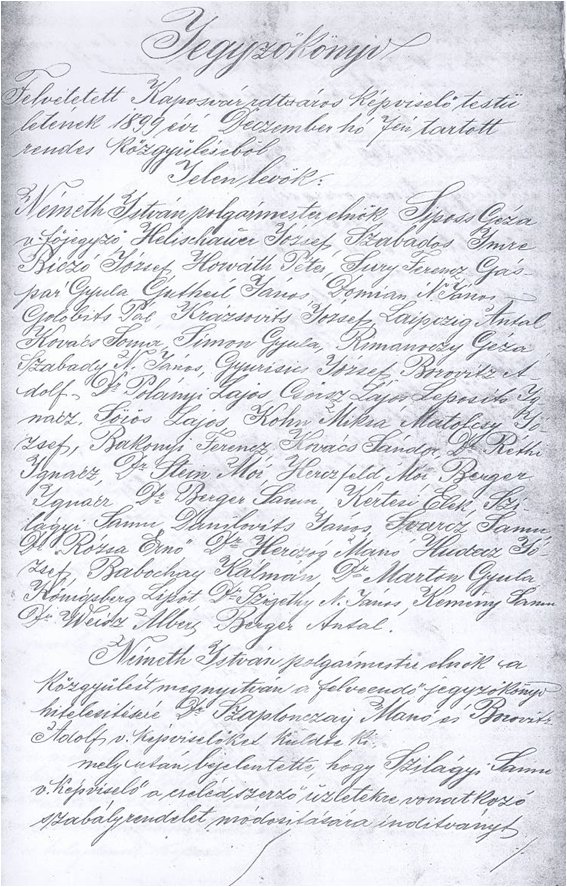 Jegyzőkönyv
Felvétetett Kaposvár rdtváros képviselő testü
letének 1899 évi Deczember hó 7én tartott
rendes közgyüléséből
Jelen levők:
Németh István polgármester elnök, Siposs Géza
v. főjegyző József, Szabados Imre
Biczó József, Horváth Péter, Sury Ferencz Gás-
pár Gyula Gutheil János, Domián N. János
Golobits Pál Krazsovits József, Laipczig Antal
Kovács Soma, Simon Gyula, Rimanóczy Géza
Szabady N. János, József, Borovitz A
dolf, Dr Polányi Lajos, Lajos Ig
nácz. Sörös Lajos, Kohn Miksa Matolcsy Jó
zsef, Bakonyi Ferencz Kovács Sándor, Dr Réthi
Ignácz, Dr Stein Mór, Herczfeld Mór Berger
Ignácz Dr Berger Samu, Kertész Elek, Szi-
lágyi Samu, Danilovits János, Svarcz Samu
Dr Rózsa Ernő Dr Herczog Manó Hudacz Jó
zsef, Babochay Kálmán, Dr Marton Gyula
Königsberg Lipót Dr Szigethy N. János, Kemény Samu
Dr Weisz Albert, Berger Antal.
Németh István polgármester elnök a
közgyülést megnyitván a felveendő jegyzőkönyv
hitelesitésére Dr Szaplonczay Manó és Borovitz
Adolf v. képviselőket küldte ki.
mely után bejelentette, hogy Szilágyi Samu
v. képviselő a cselédszerző üzletekre vonatkozó
szabályrendelet módositására inditványt